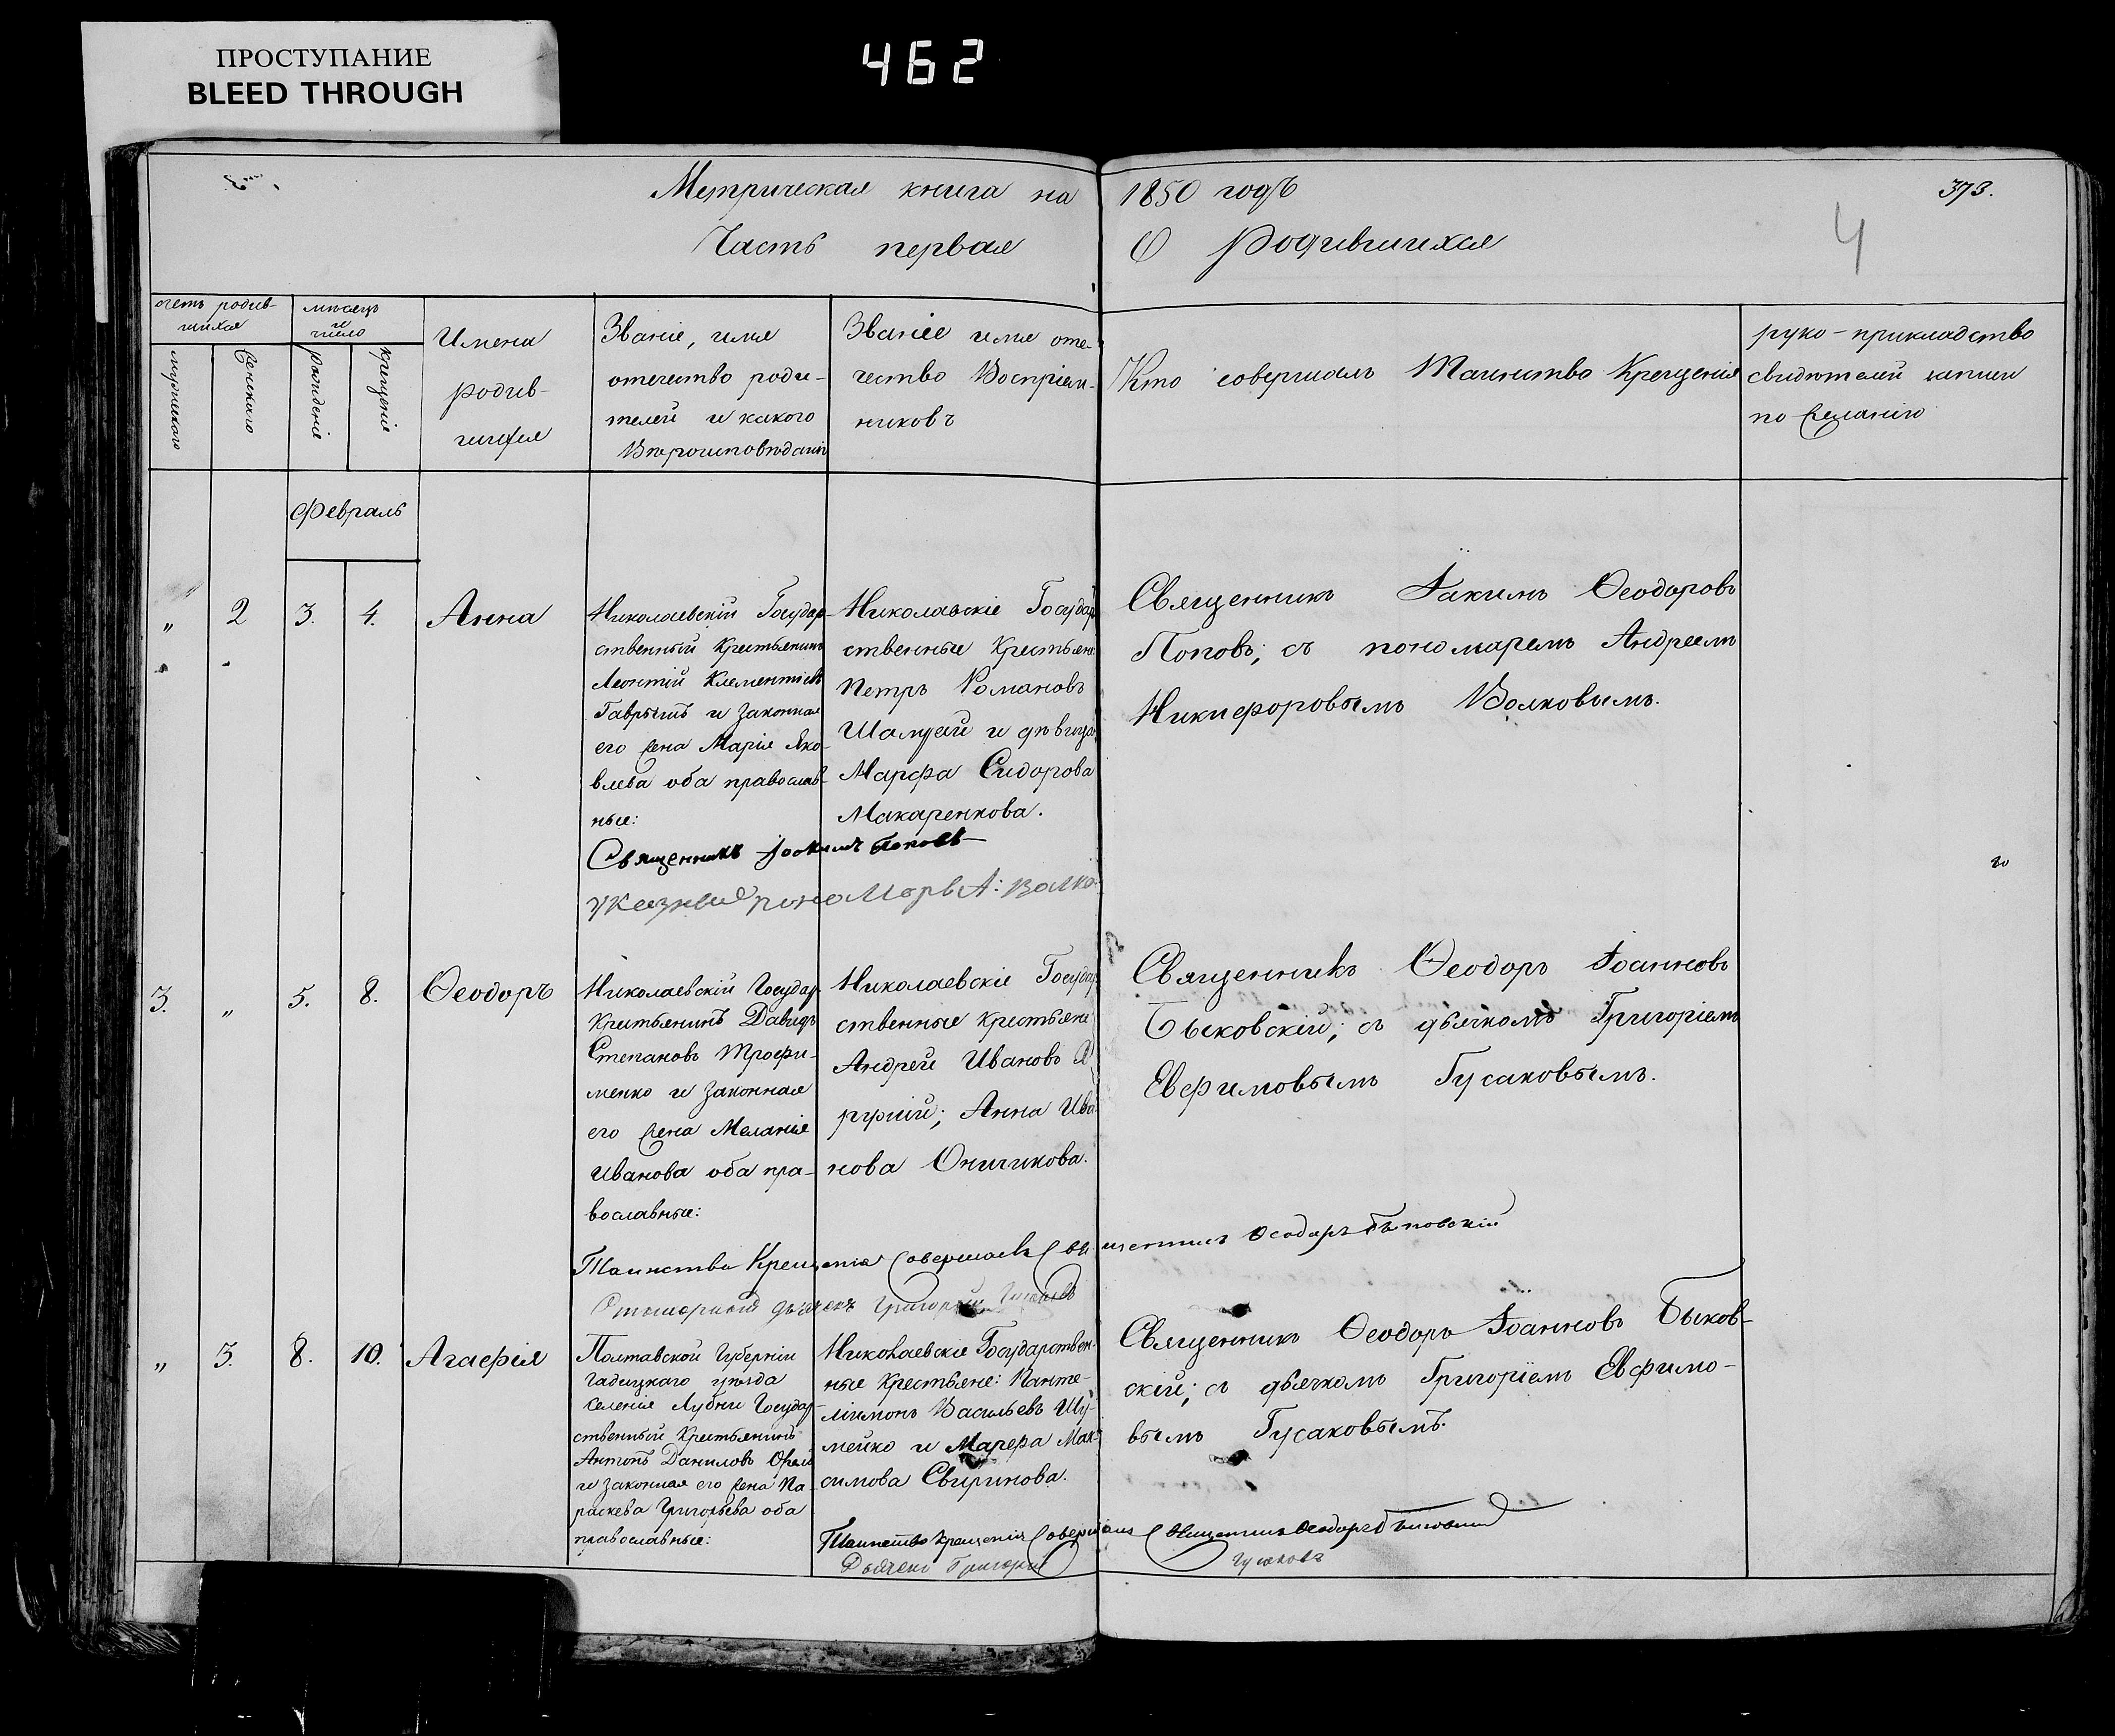 ПРОСТУПАНИЕ
BLEED THROUGH
462
Метрическая книга на 1850 годъ
373.
4
Часть первая О родившихся
счетъ родив-
шихся
мѣсяцъ
и
число
мужескаго
женскаго
рожденіе
крещеніе
Имена
родив-
шихся
Званіе, имя
отечество роди-
телей и какого
Вѣроисповѣданія
Званіе имя оте-
чество Воспріем-
никовъ
Кто совершалъ Таинство Крещенія
руко-прикладство
свидѣтелей записи
по желанію
Февраль
„ 2 3. 4. Анна
Николаевскій Государ-
ственный Крестьянинъ
Леонтій Климентіевъ
и законная
его жена Марія Яко-
влева оба православ-
ные:
Николавскіе Государ
ственные Крестьяне
Петръ Романовъ
и дѣвица
Марфа Сидорова
Макаренкова.
Священникъ Іакимъ Ѳеодоровъ
Поповъ; съ пономаремъ Андреемъ
Никифоровымъ Волковымъ.
Священникъ Іоакимъ Поповъ
указный пономарь А: Волко
3. „ 5. 8. Ѳеодоръ
Николаевскій Государ
Крестьянинъ Давидъ
Степановъ Трофи-
менко и законная
его жена Меланія
Иванова оба пра-
вославные:
Николаевскіе Государ
ственные крестьяне
Андрей Ивановъ
Анна Ива
нова
Священникъ Ѳеодоръ Іоанновъ
Быковскій; съ дьячкомъ Григоріемъ
Евфимовымъ Гусаковымъ.
Таинство Крещенія совершалъ священникъ Ѳеодоръ Быковскій
дьячекъ Григорій Гусаковъ
„ 3. 8. 10. Агафія
Полтавской Губерніи
Гадицкаго уѣзда
селенія Лубни Государ-
ственный Крестьянинъ
Антонъ Даниловъ
и законная его жена Па-
раскева Григорьева оба
православные:
Николаевскіе Государствен-
ные Крестьяне: Панте-
лимонъ Васильевъ Шу-
мейко и Марфа Мак-
симова Свиринова.
Священникъ Ѳеодоръ Іоанновъ Быков-
скій; съ дьячкомъ Григоріемъ Евфимо-
вымъ Гусаковымъ.
Таинство крещенія совершалъ священникъ Ѳеодоръ Быковскій
Дьячекъ Григорій Гусаковъ